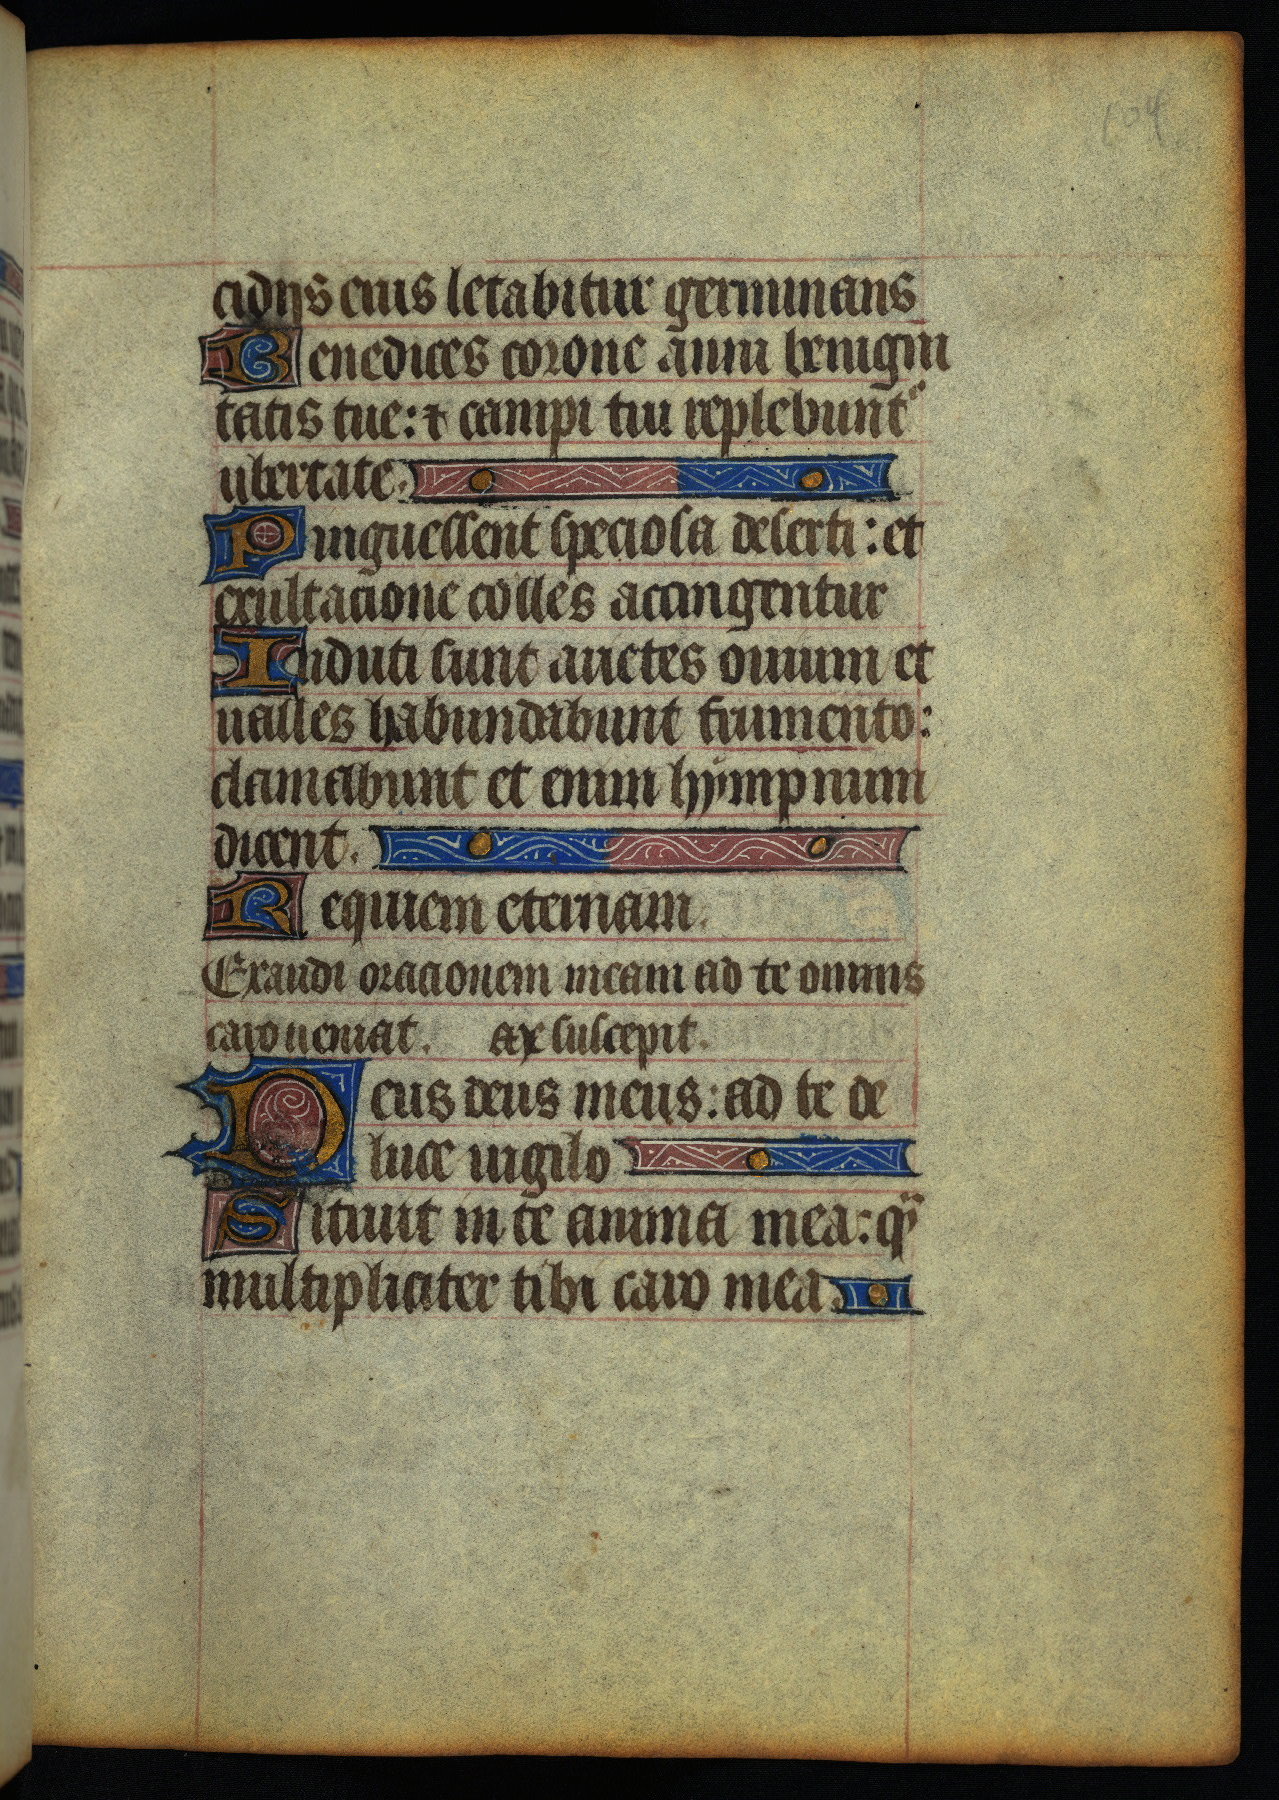 104
cidijs eius letabitur germinans
Benedices corone anni benigni
tatis tue: ⁊ campi tui replebunt᷑
ubertate.
Pinguessent speciosa deserti: et
exultacione colles accingentur
Induti sunt arietes ouium et
ualles habundabunt frumento:
clamabunt et enim hympnum
dicent.
Requiem eternam.
Exaudi oracionem meam ad te omnis
caro ueniat. ax suscepit.
Deus deus meus: ad te de
luce uigilo
Sitiuit in te anima mea: qͣ
multipliciter tibi caro mea.